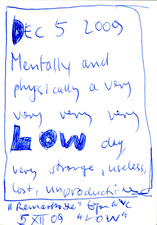 DEC 5 2009
Mentally and
physically a very
very very very
LOW day,
very strange, useless,
lost, unproductive
5 XII 09 "LOW"